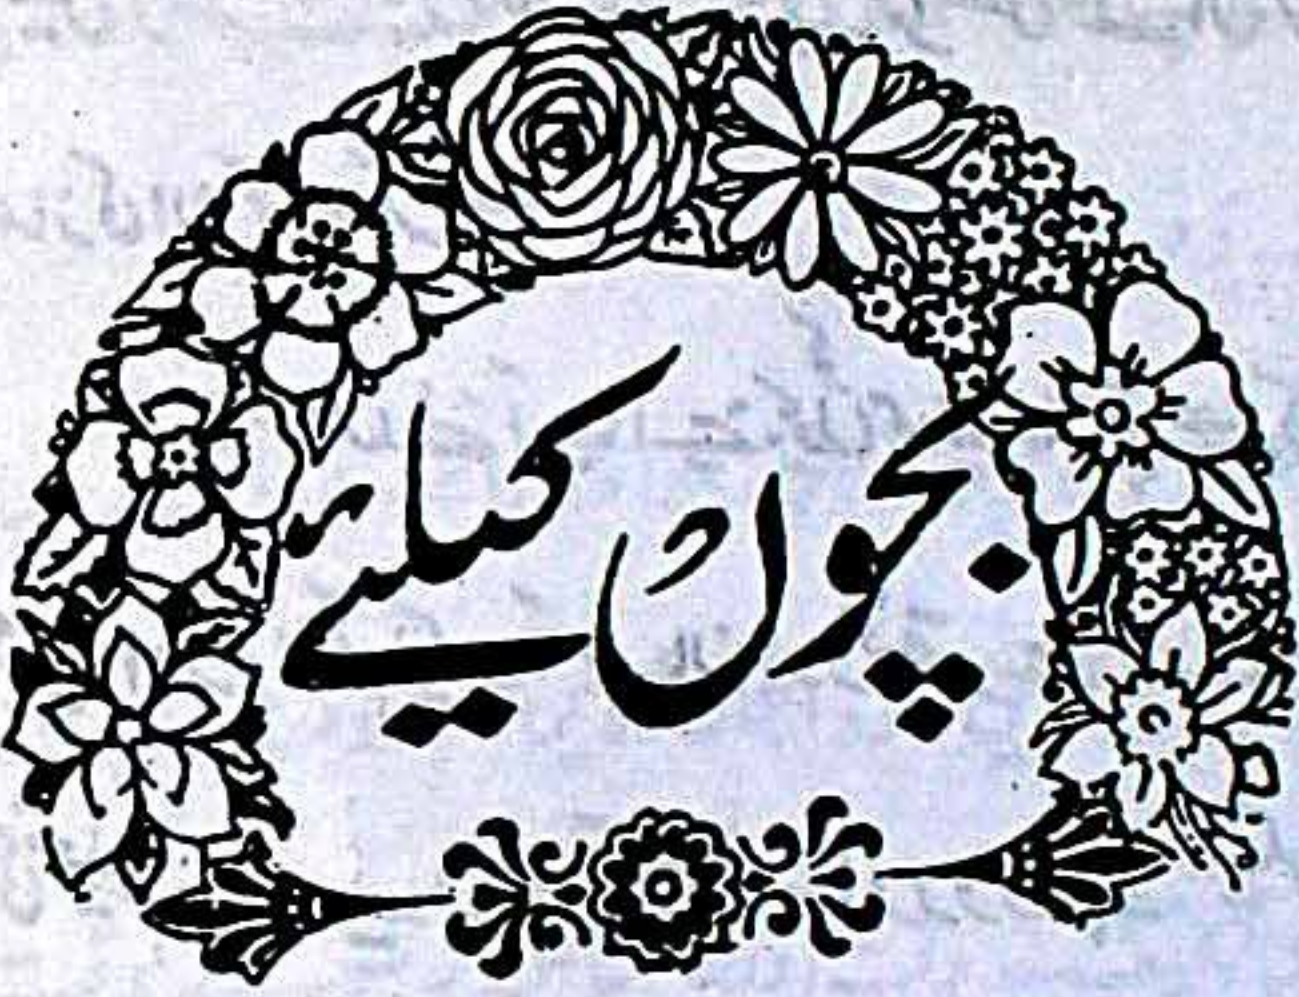 بچوں کیلئے